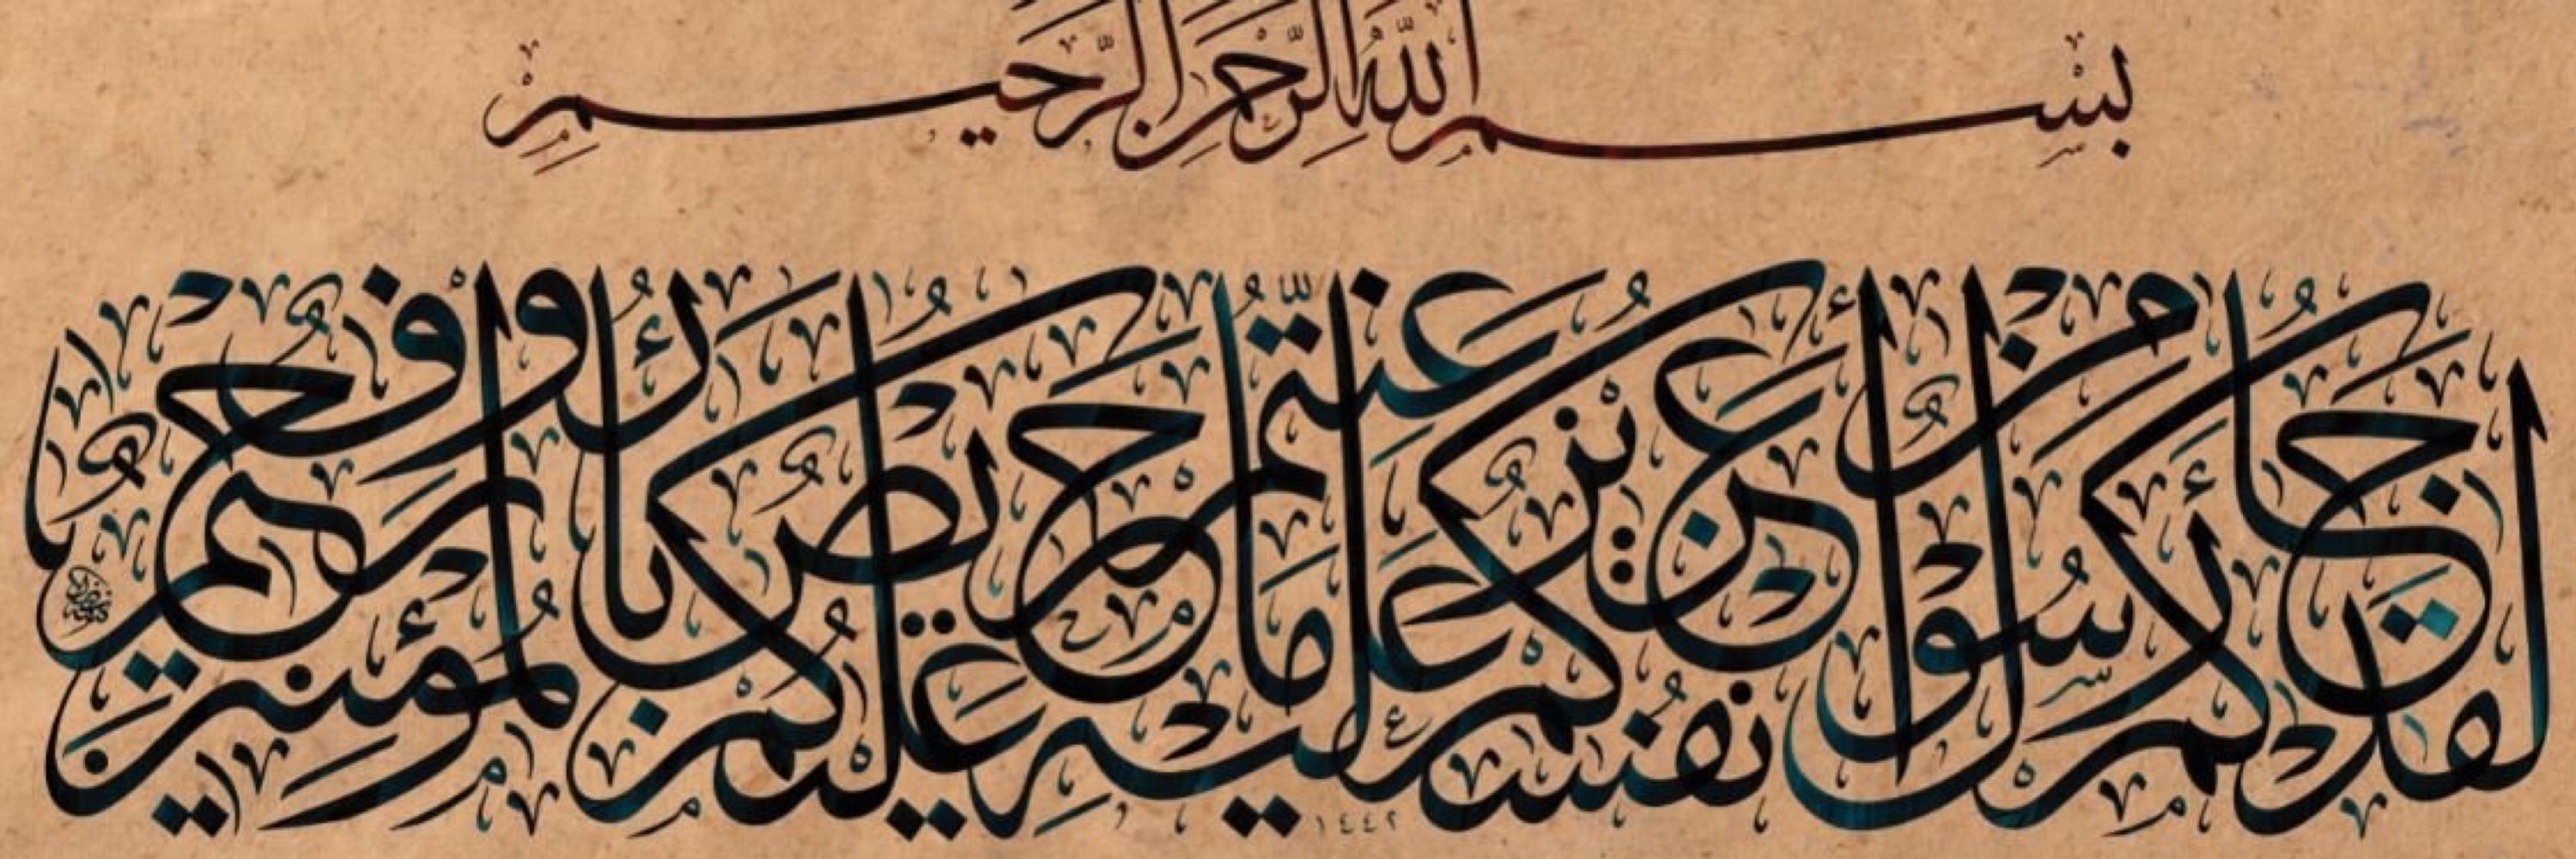 بِسْمِ اللَّهِ الرَّحْمَنِ الرَّحِيمِ
لَقَدْ جَاءَكُمْ رَسُولٌ مِنْ أَنْفُسِكُمْ عَزِيزٌ عَلَيْهِ مَا عَنِتُّمْ حَرِيصٌ عَلَيْكُمْ بِالْمُؤْمِنِينَ رَءُوفٌ رَحِيمٌ
١٤٤٢